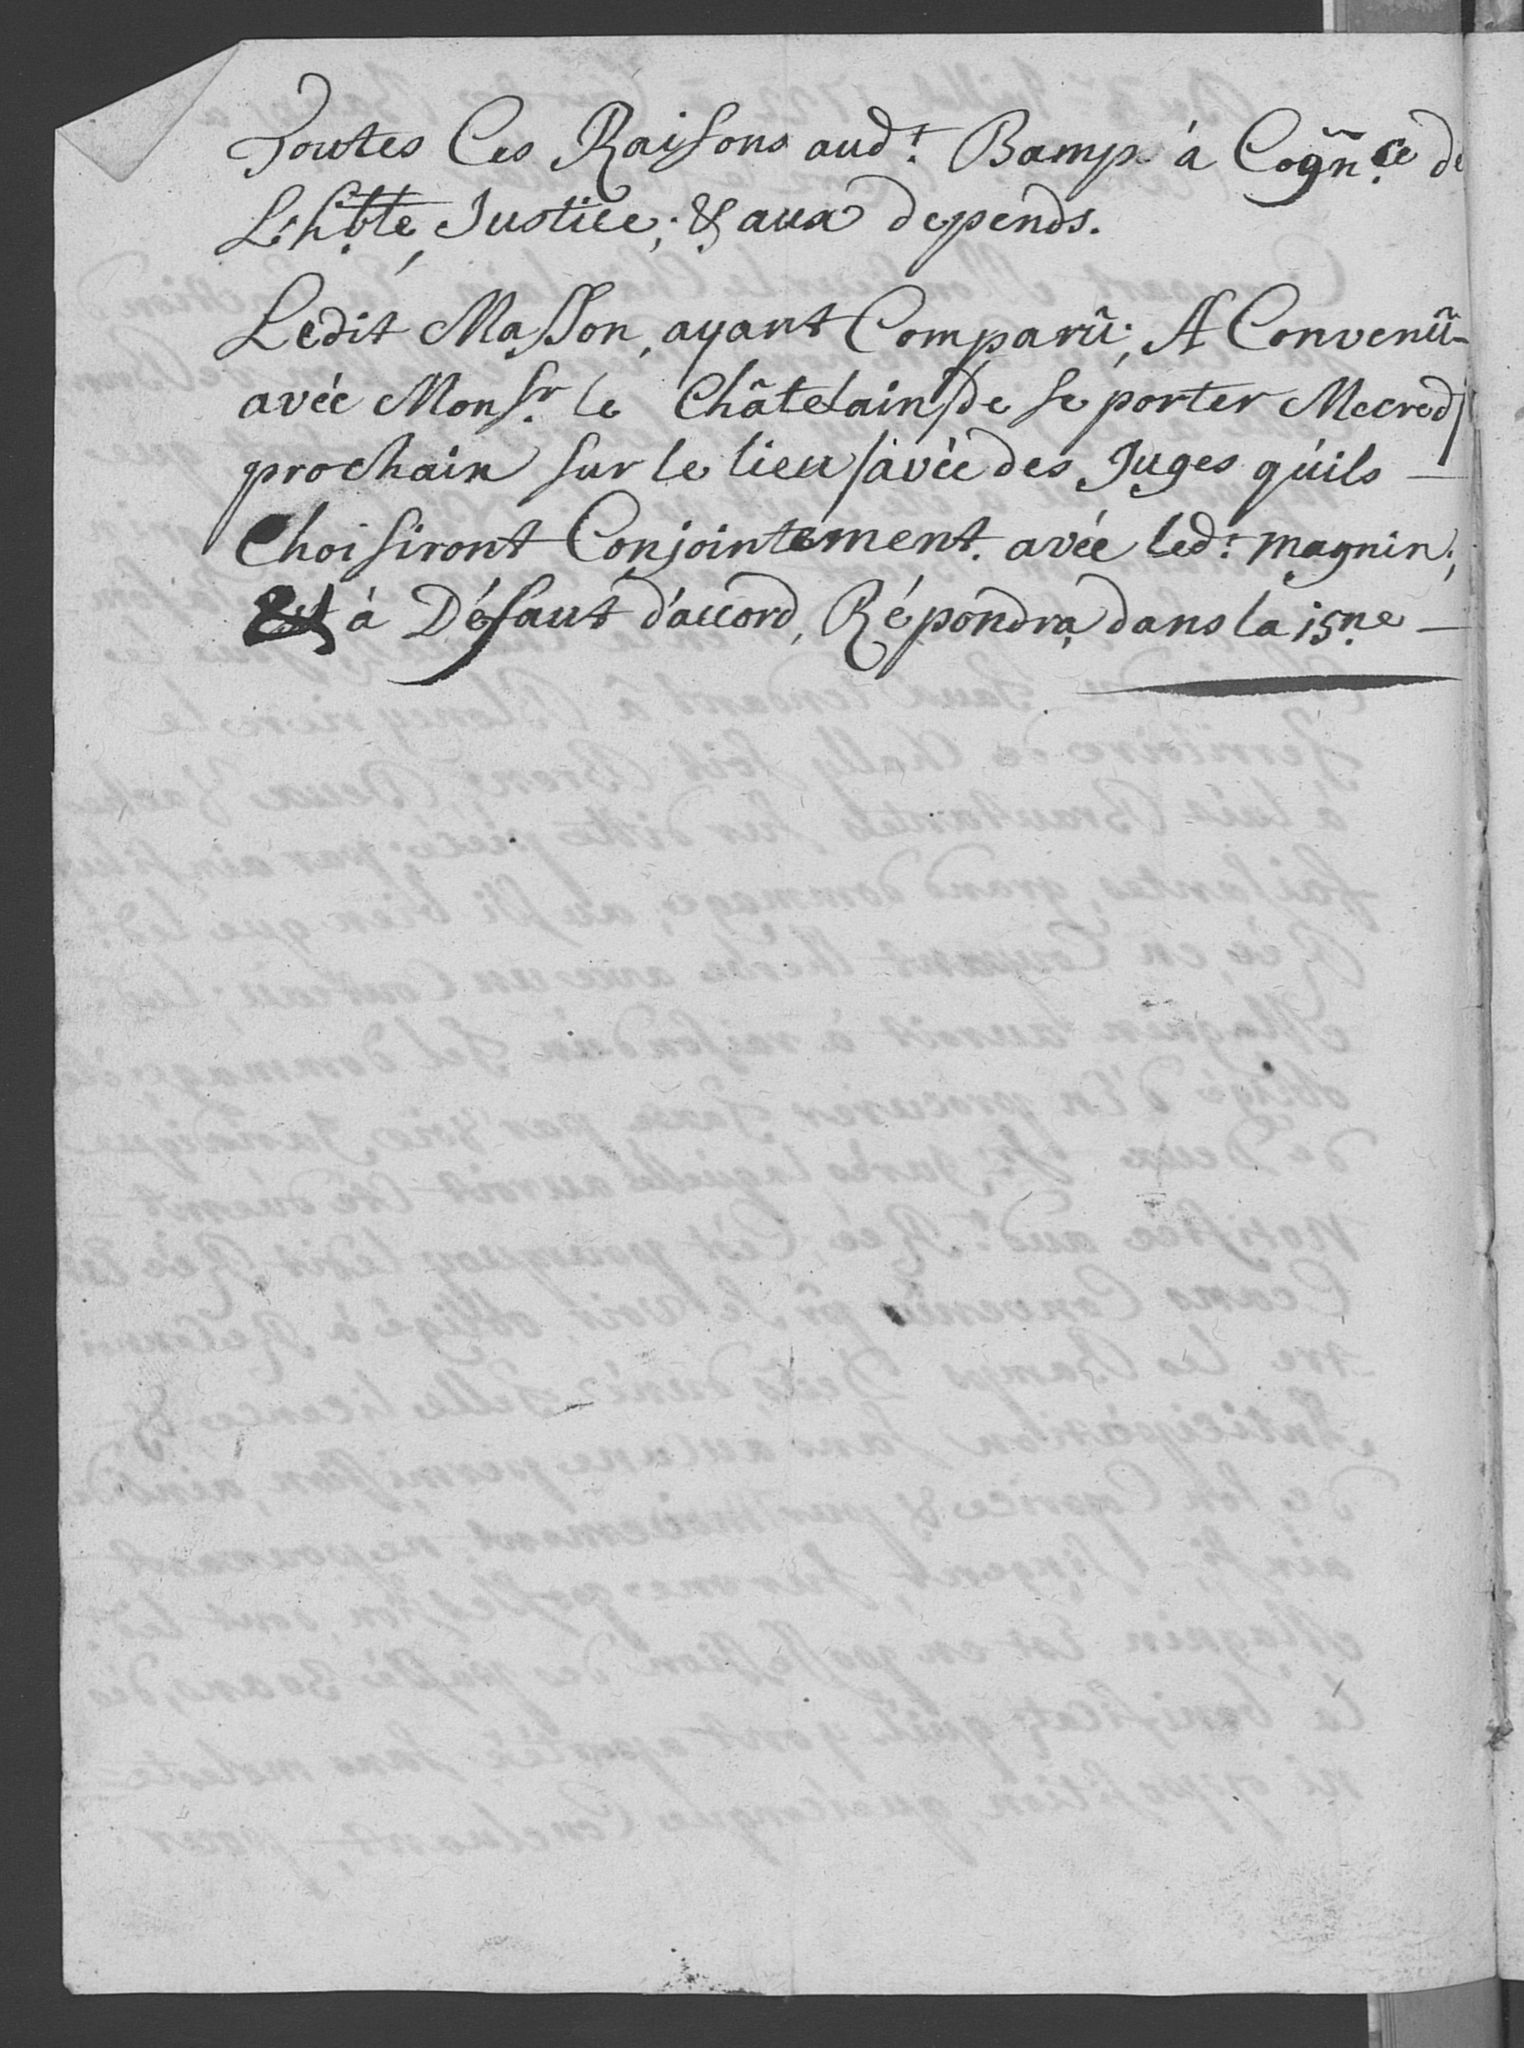 Toutes Ces Raisons aud.t Bamp à Cogñ.ce de
L'h.ble Justice; & aux depends.
Ledit Masson, ayant Comparû; A Convenû
avéc Mons.r le Châtelain de se porter Mecredj
prochain sur le lieu avéc des Juges qúils
Choisiront Conjointement. avéc led.t magnin;
& à Défaut d'accord, Répondra dans la 15.ne